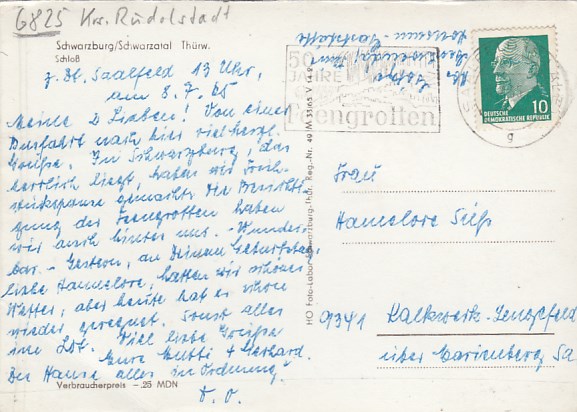 6825 Krs. Rudolstadt
Schwarzburg/Schwarzatal Thürw.
Schloß
z. Zt. Saalfeld 13 Uhr,
am 8.7.65
Meine 2 Lieben! Von einer
Busfahrt nach hier viel herzl.
Grüße. In Schwarzburg, das
herrlich liegt, haben wir Früh-
stückspause gemacht. Die Besichti-
gung der Feengrotten haben
wir auch hinter uns. - Wunder-
bar. - Gestern, an Deinem Geburtstag,
liebe Hannelore, hatten wir schönes
Wetter, aber heute hat es schon
wieder geregnet. Sonst alles
im Lot. Viel liebe Grüße
Eure Mutti + Gerhard.
Zu Hause alles in Ordnung.
Verbraucherpreis -,25 MDN
HO Foto-Labor Schwarzburg-Thür. Reg.-Nr. 49 M 3365 V
50
JAHRE
Feengrotten
g
DEUTSCHE
DEMOKRATISCHE REPUBLIK
10
Frau
Hannelore
9341 Kalkwerk-Lengefeld
über Marienberg Sa